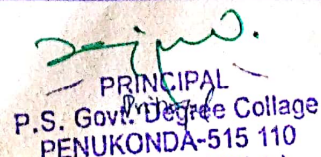 PRINCIPAL
P.S. Govt. Degree Collage
PENUKONDA-515 110